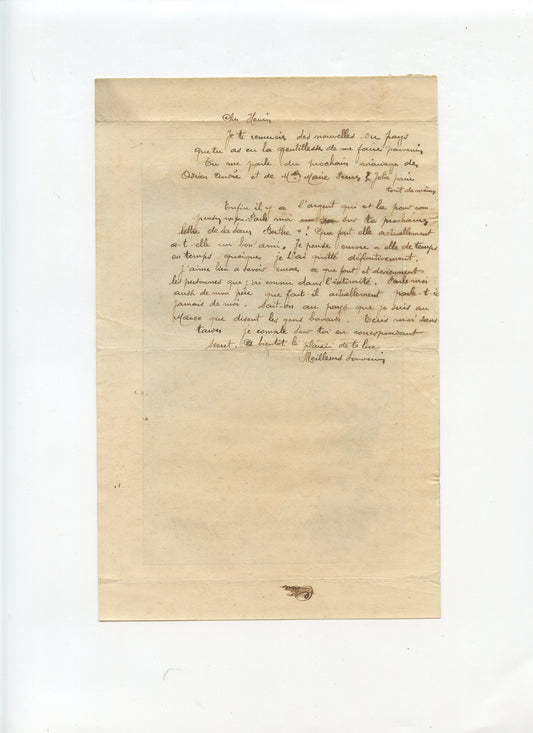 Cher Henri
Je te remercie des nouvelles du pays
que tu as eu la gentillesse de me faire parvenir
Tu me parle du prochain mariage de
Adrien et de Mlle Marie ? Jolie paire
tout de même
Enfin il y a l'argent qui est la pour com
penser. Parle moi sur ta prochaine
lettre de la sœur Berthe ? Que fait elle actuellement
a-t-elle un bon ami. Je pense encore a elle de temps
en temps quoique je l'ai quitté définitivement.
J'aime bien a savoir encore ce que font et deviennent
les personnes que j'ai connu dans l'intimité. Parle moi
aussi de mon père que fait il actuellement parle-t-il
jamais de moi. Sait-on au pays que je suis au
Maroc que disent les gens bavards. Écris moi sans
tarder je compte sur toi en correspondant
secret. A bientôt le plaisir de te lire
Meilleurs Souvenirs